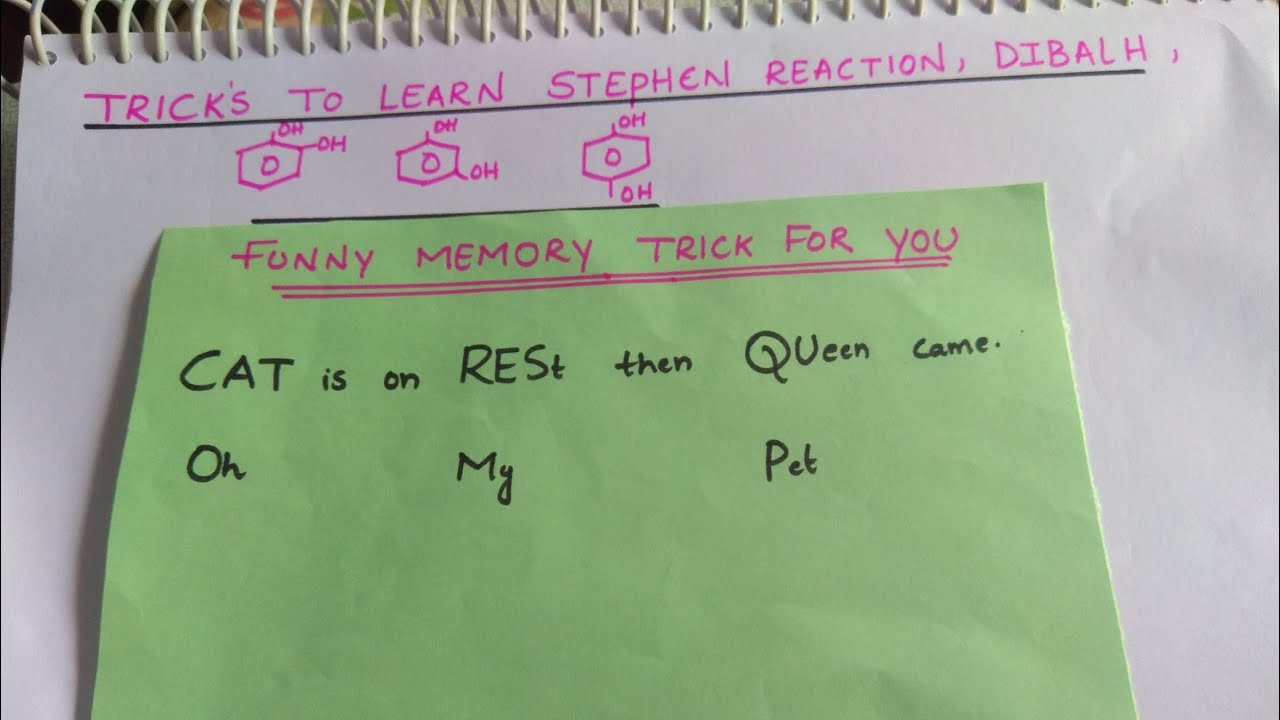 TRICK'S TO LEARN STEPHEN REACTION, DIBALH,
OH OH OH OH OH OH
FUNNY MEMORY TRICK FOR YOU
CAT is on RESt then QUeen came.
Oh My Pet